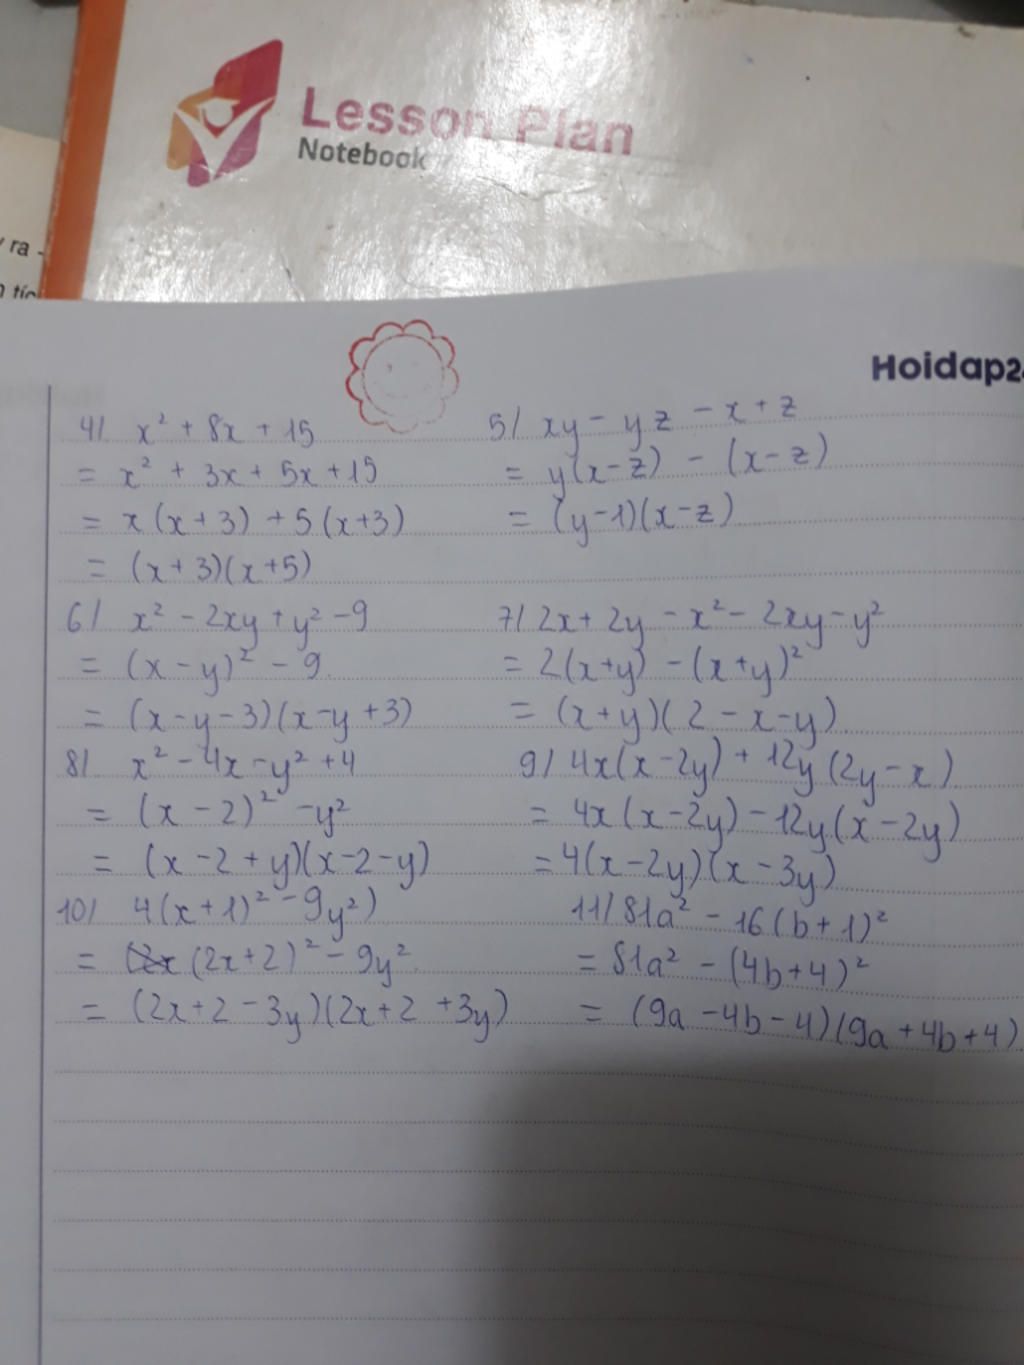 Lesson Plan
Notebook
ra -
tíc
Hoidap2
4/ x² + 8x + 15
= x² + 3x + 5x + 15
= x(x+3) + 5(x+3)
= (x+3)(x+5)
5/ xy - yz - x + z
= y(x-z) - (x-z)
= (y-1)(x-z)
6/ x² - 2xy + y² - 9
= (x-y)² - 9
= (x-y-3)(x-y+3)
7/ 2x + 2y - x² - 2xy - y²
= 2(x+y) - (x+y)²
= (x+y)(2-x-y)
8/ x² - 4x - y² + 4
= (x-2)² - y²
= (x-2+y)(x-2-y)
9/ 4x(x-2y) + 12y(2y-x)
= 4x(x-2y) - 12y(x-2y)
= 4(x-2y)(x-3y)
10/ 4(x+1)² - 9y²)
= (2x+2)² - 9y²
= (2x+2-3y)(2x+2+3y)
11/ 81a² - 16(b+1)²
= 81a² - (4b+4)²
= (9a-4b-4)(9a+4b+4)